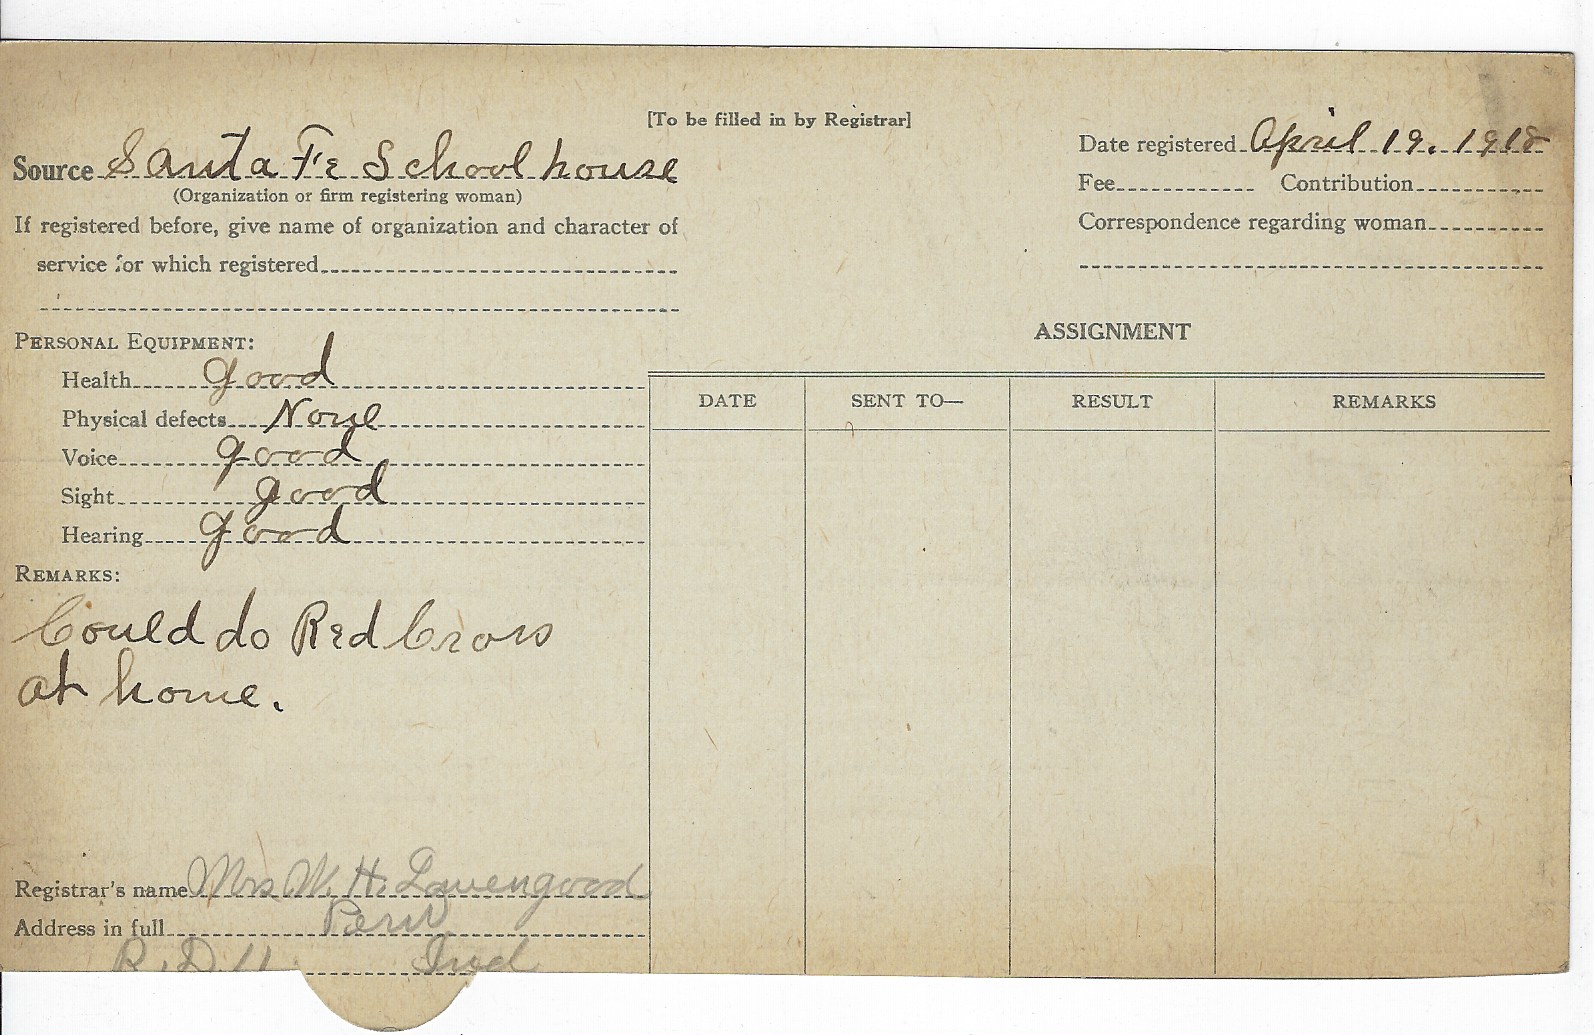 [To be filled in by Registrar]
Source Santa Fe School house
(Organization or firm registering woman)
If registered before, give name of organization and character of
service for which registered
Date registered April 19. 1918
Fee Contribution
Correspondence regarding woman
PERSONAL EQUIPMENT:
Health good
Physical defects None
Voice good
Sight good
Hearing good
REMARKS:
Could do Red Cross
at home.
Registrar's name Mrs W. H. Lavengood
Address in full Peru
R. D. 11. Ind
ASSIGNMENT
DATE SENT TO— RESULT REMARKS